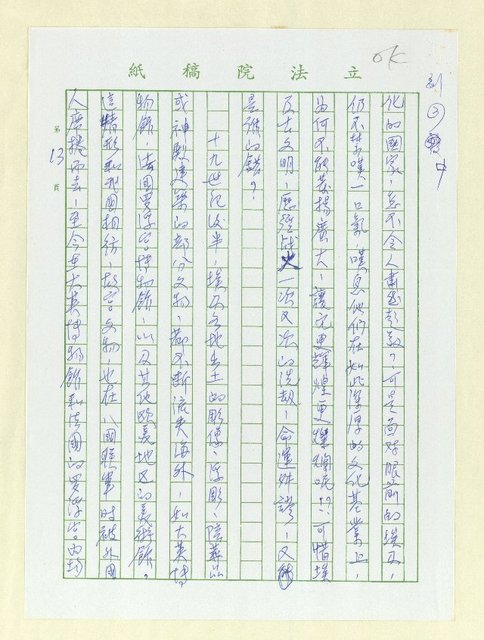 ok
立法院稿紙
化的國家，怎不令人肅然起敬？可是面對眼前的埃及，
仍不禁嘆一口氣，嘆息他們在如此深厚的文化基業上，
為何不能發揚廣大，讓它更輝煌更燦爛呢？？可惜埃
及古文明，歷經戰火一次又次的洗劫，命運舛謬，又
是誰的錯？
十九世紀後半，埃及各地出土的彫像、浮彫、陪葬品
或神殿建築的部分文物，都不斷流失海外，如大英博
物館，法國羅浮宮博物館，以及其他歐美地區的美術館。
這情形和我國相彷，故宮文物，也在八國聯軍時被外國
人席捲而去，至今在大英博物館和法國的羅浮宮內均
第13頁